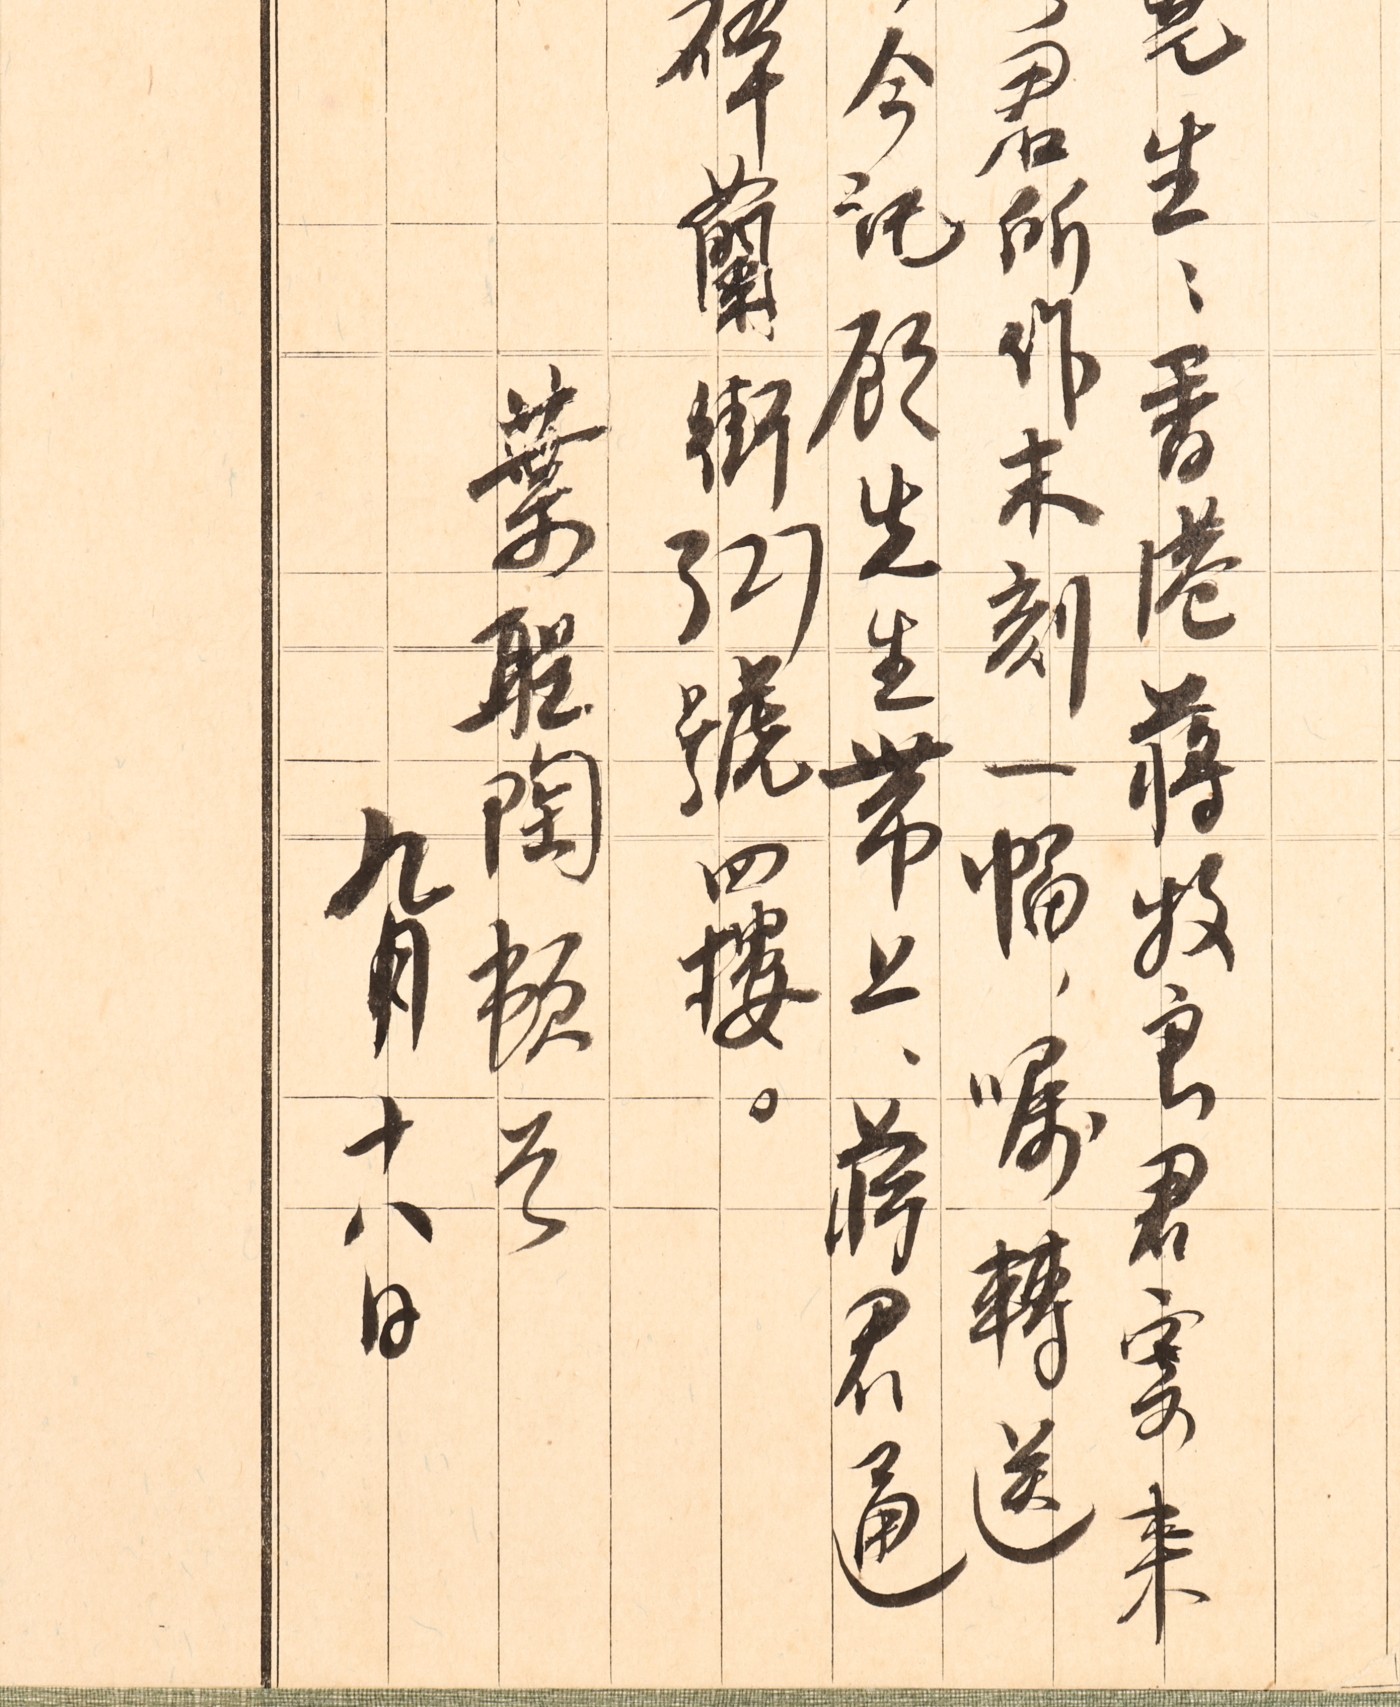 先生：香港蔣牧良君寄来
君所作木刻一幅，嘱轉送
今託顧先生帶上、蔣君通
砵蘭街327號四樓。
葉聖陶頓首
九月十八日